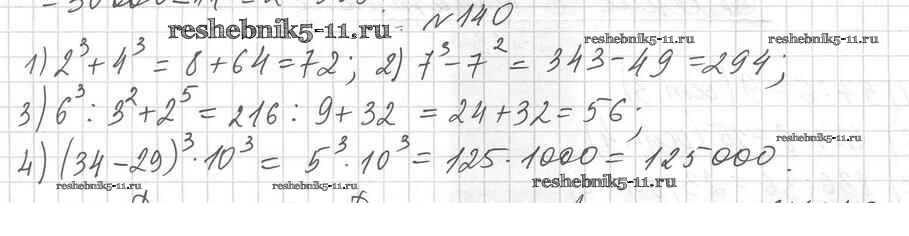 №140
reshebnik5-11.ru
reshebnik5-11.ru reshebnik5-11.ru
1) 2³ + 4³ = 8 + 64 = 72; 2) 7³ - 7² = 343 - 49 = 294;
3) 6³ : 3² + 2⁵ = 216 : 9 + 32 = 24 + 32 = 56;
reshebnik5-11.ru
4) (34 - 29)³ · 10³ = 5³ · 10³ = 125 · 1000 = 125000.
reshebnik5-11.ru reshebnik5-11.ru reshebnik5-11.ru